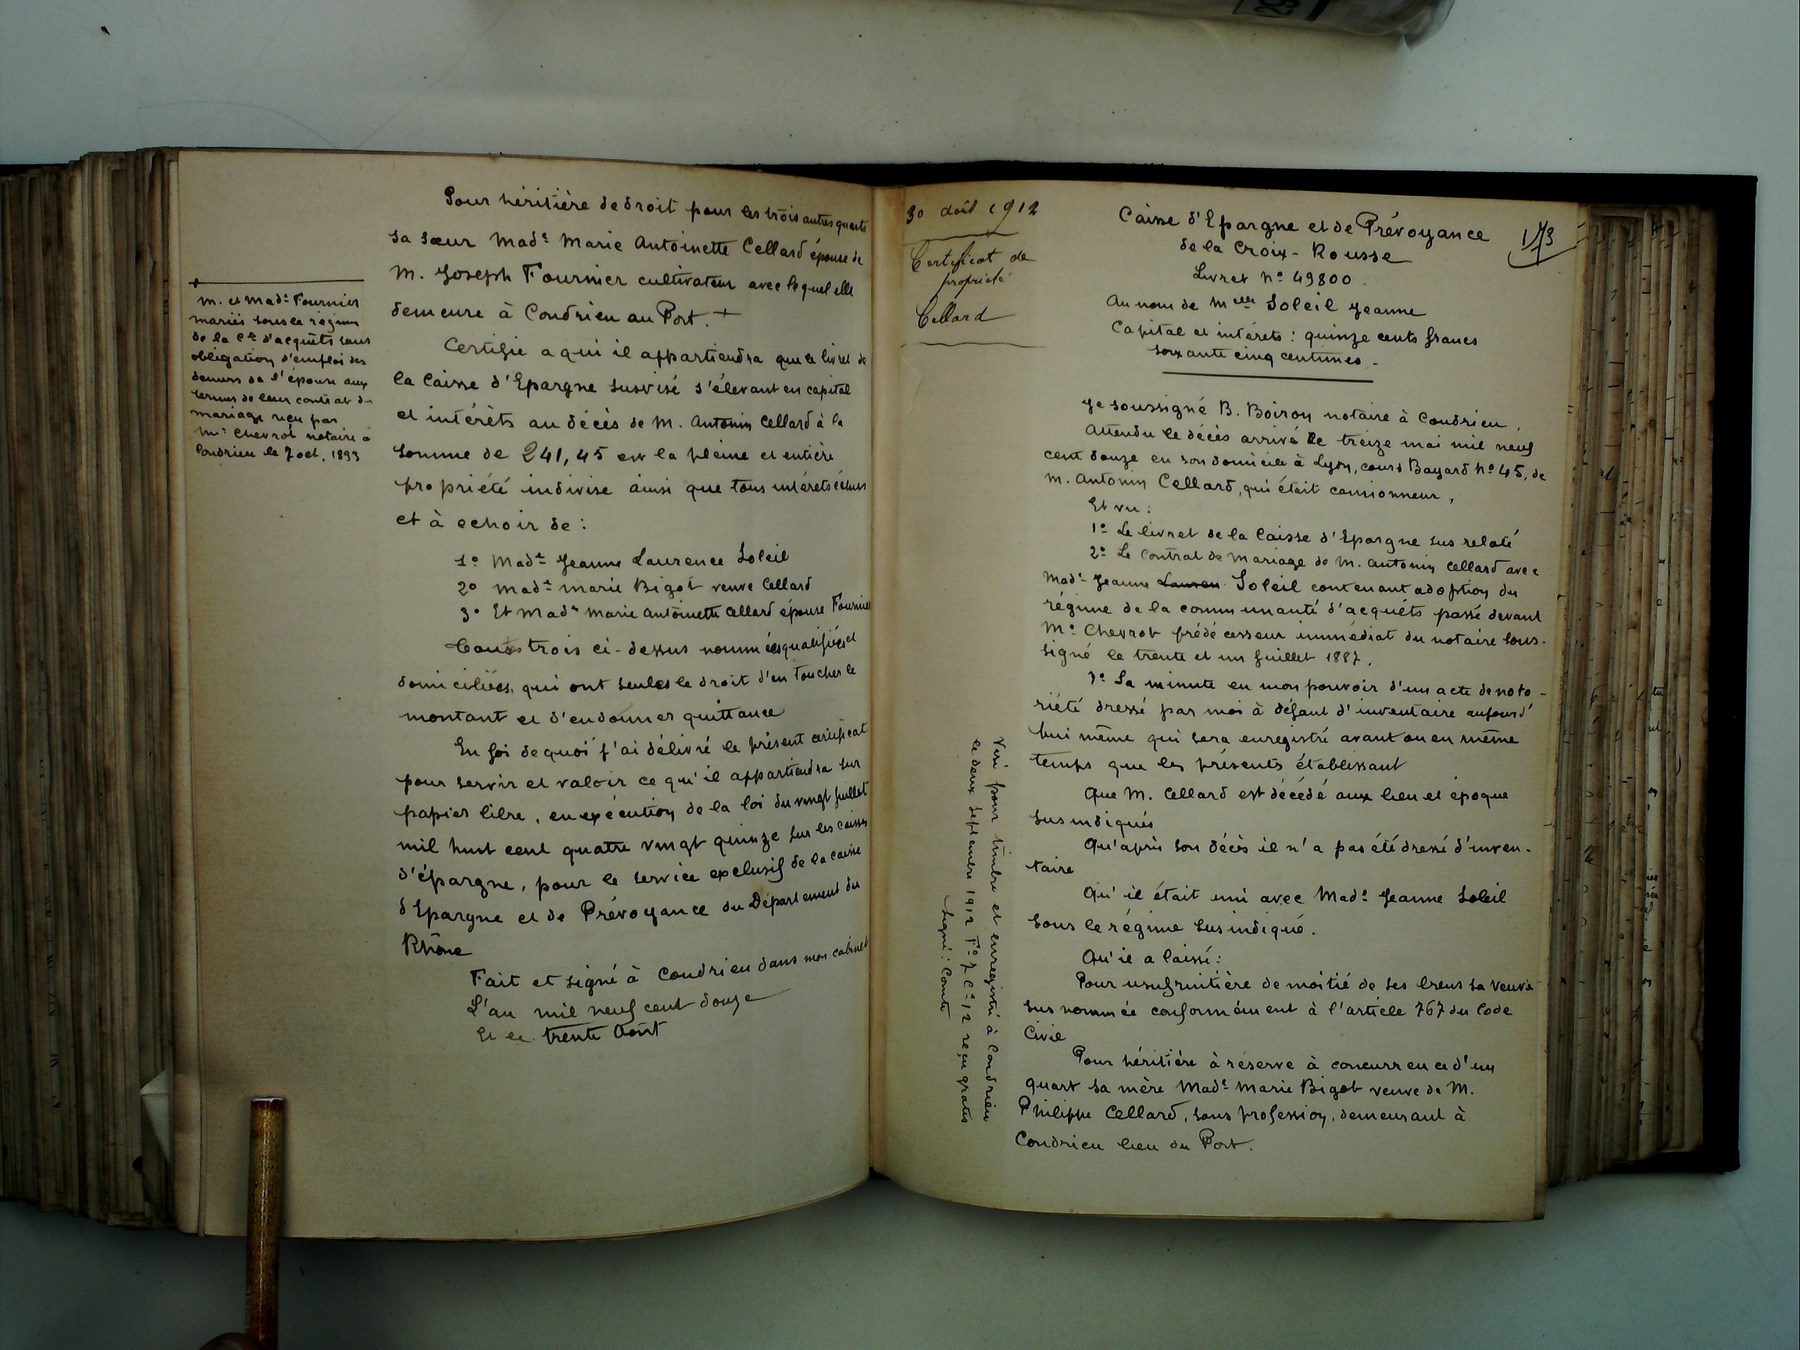 Pour héritière de droit pour les trois autres quarts
sa sœur Made Marie Antoinette Cellard épouse de
M. Joseph Fournier cultivateur avec lequel elle
demeure à Condrieu au Port. +
Certifie a qui il appartiendra que le livret de
la Caisse d'Epargne susvisé s'élevant en capital
et intérêts au décès de M. Antonin Cellard à la
somme de 241,45 est la pleine et entière
propriété indivise ainsi que tous intérêts échus
et à echoir de :
1o Made Jeanne Laurence Soleil
2o Made Marie Bigot veuve Cellard
3o Et Made Marie Antoinette Cellard épouse Fournier
Tous trois ci-dessus nommées qualifiées et
domiciliées, qui ont seules le droit d'en toucher le
montant et d'en donner quittance
En foi de quoi j'ai délivré le présent certificat
pour servir et valoir ce qu'il appartiendra sur
papier libre, en exécution de la loi du vingt juillet
mil huit cent quatre vingt quinze sur les caisses
d'épargne, pour le service exclusif de la caisse
d'Epargne et de Prévoyance du Département du
Rhône
Fait et signé à Condrieu dans mon cabinet
L'an mil neuf cent douze
Et le trente Août
+
M. et Made Fournier
mariés sous le régime
de la Cté d'acquêts sans
obligation d'emploi des
deniers de l'épouse aux
termes de leur contrat de
mariage reçu par
Me Chevrot notaire à
Condrieu le 7 oct. 1893
30 août 1912
Certificat de
propriété
Cellard
173
Caisse d'Epargne et de Prévoyance
de la Croix-Rousse
Livret No 49800
Au nom de Melle Soleil Jeanne
Capital et intérets : quinze cents francs
soixante cinq centimes.-
Je soussigné B. Boiron notaire à Condrieu,
Attendu le décès arrivé le treize mai mil neuf
cent douze en son domicile à Lyon, cours Bayard No 45, de
M. Antonin Cellard, qui était camionneur,
Et vu :
1o Le livret de la Caisse d'Epargne sus relaté
2o Le Contrat de mariage de M. Antonin Cellard avec
Made Jeanne Lauren Soleil contenant adoption du
régime de la communauté d'acquêts passé devant
Me Chevrot prédécesseur immédiat du notaire sous-
signé le trente et un juillet 1887.
3o La minute en mon pouvoir d'un acte de noto-
riété dressé par moi à défaut d'inventaire aujourd'
hui même qui sera enregistré avant ou en même
temps que les présents établissant
Que M. Cellard est décédé aux lieu et époque
susindiqués
Qu'après son décès il n'a pas été dressé d'inven-
taire
Qu'il était uni avec Made Jeanne Soleil
sous le régime susindiqué.
Qu'il a laissé :
Pour usufruitière de moitié de ses biens sa veuve
sus nommée conformément à l'article 767 du Code
Civil
Pour héritière à réserve à concurrence d'un
quart sa mère Made Marie Bigot veuve de M.
Philippe Cellard, sans profession, demeurant à
Condrieu lieu du Port.
Visé pour timbre et enregistré à Condrieu
le deux septembre 1912 Fo 7 Ce 12 reçu gratis
Signé : Comte